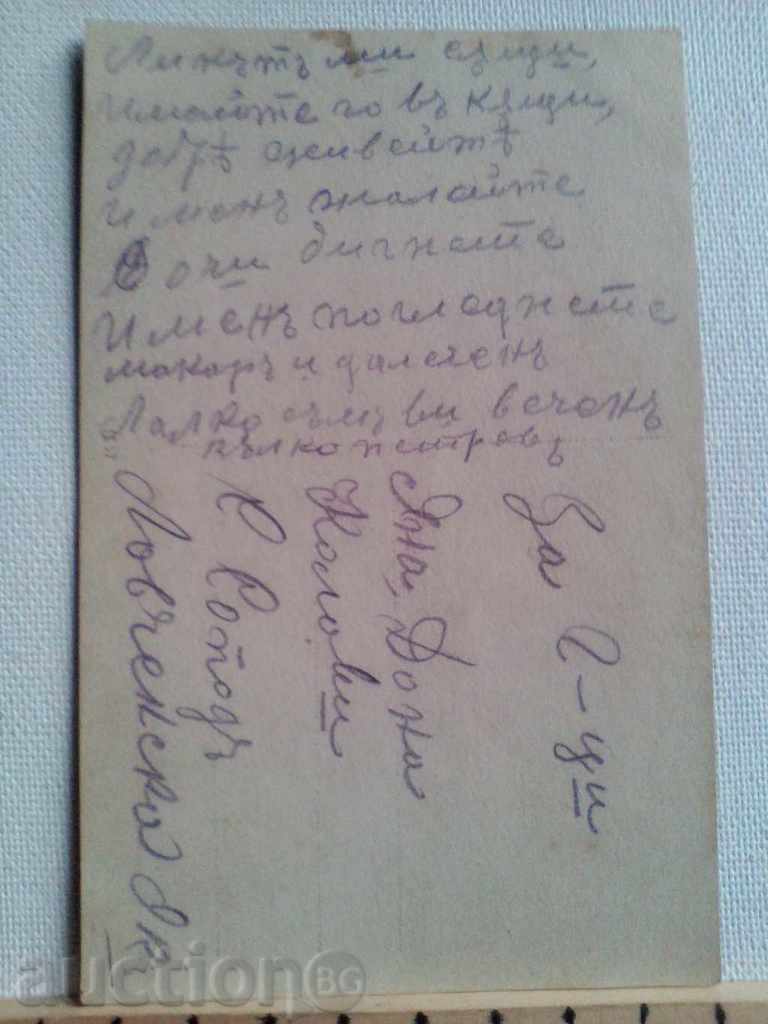 Ликътъ ми същи,
имайте го въ кѫщи,
добрѣ живейтѣ
и менъ жалайте
Очи дигнете
и менъ погледнете
макаръ и далеченъ
Лалко съмъ ви веченъ
Вълко Петровъ
За Г-ци
Яна, Дона
Калови
С. Сопотъ
Ловченска Ок.
auctionBG